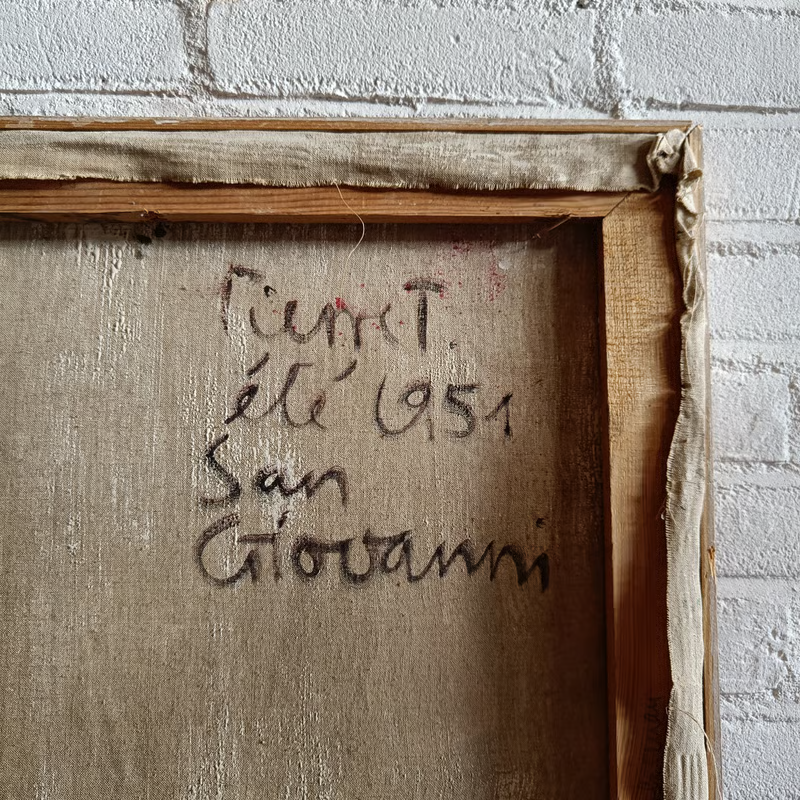 Pierre T.
été 1951
San
Giovanni